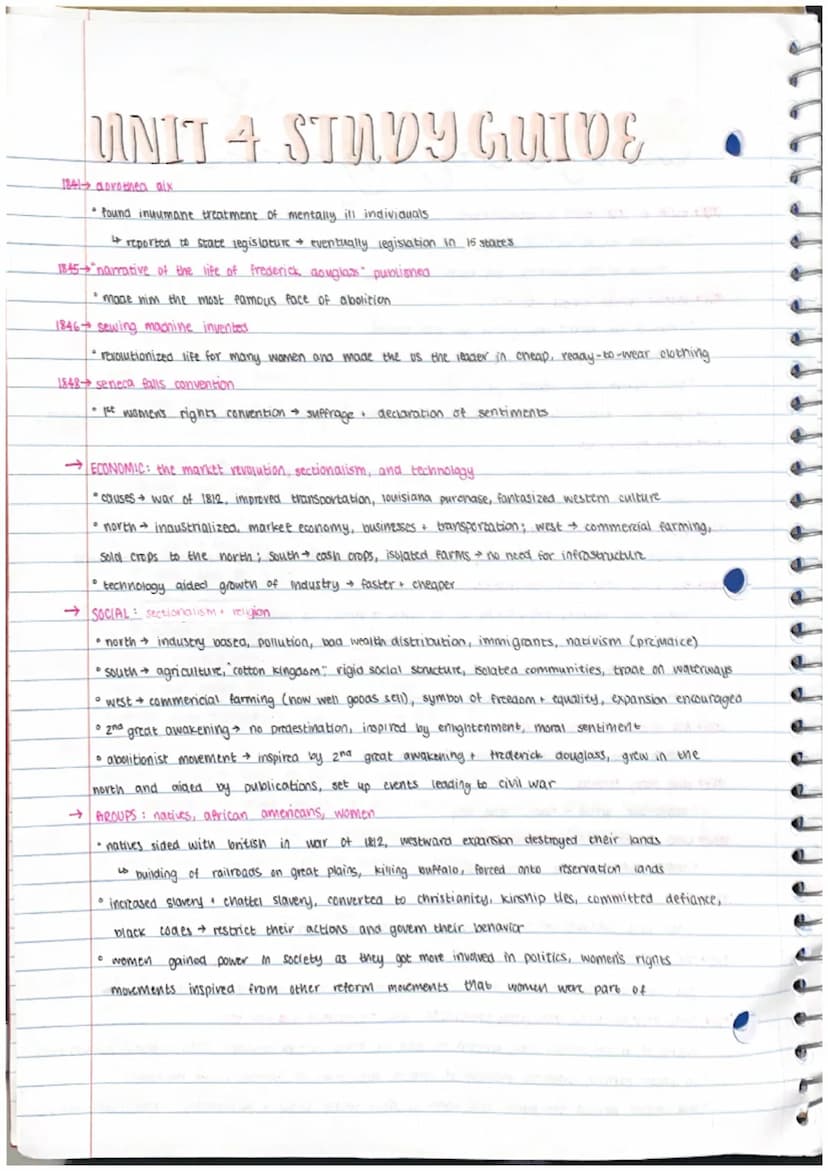 UNIT 4 STUDY GUIDE
1841→ dorothea dix
• found inhumane treatment of mentally ill individuals
↳ reported to state legislature → eventually legislation in 15 states
1845→ "narrative of the life of frederick douglass" published
• made him the most famous face of abolition
1846→ sewing machine invented
• revolutionized life for many women and made the US the leader in cheap, ready-to-wear clothing
1848→ seneca falls convention
• 1st women's rights convention → suffrage + declaration of sentiments
→ ECONOMIC: the market revolution, sectionalism, and technology
• causes → war of 1812, improved transportation, louisiana purchase, fantasized western culture
• north → industrialized, market economy, businesses + transportation; west → commercial farming,
sold crops to the north; south → cash crops, isolated farms → no need for infrastructure
• technology aided growth of industry → faster + cheaper
→ SOCIAL: sectionalism + religion
• north → industry based, pollution, bad wealth distribution, immigrants, nativism (prejudice)
• south → agriculture, "cotton kingdom", rigid social structure, isolated communities, trade on waterways
• west → commericial farming (how well goods sell), symbol of freedom + equality, expansion encouraged
• 2nd great awakening → no predestination, inspired by enlightenment, moral sentiment
• abolitionist movement → inspired by 2nd great awakening + frederick douglass, grew in the
north and aided by publications, set up events leading to civil war
→ GROUPS: natives, african americans, women
• natives sided with british in war of 1812, westward expansion destroyed their lands
↳ building of railroads on great plains, killing buffalo, forced onto reservation lands
• increased slavery + chattel slavery, converted to christianity, kinship ties, committed defiance,
black codes → restrict their actions and govern their behavior
• women gained power in society as they got more involved in politics, women's rights
movements inspired from other reform movements that women were part of